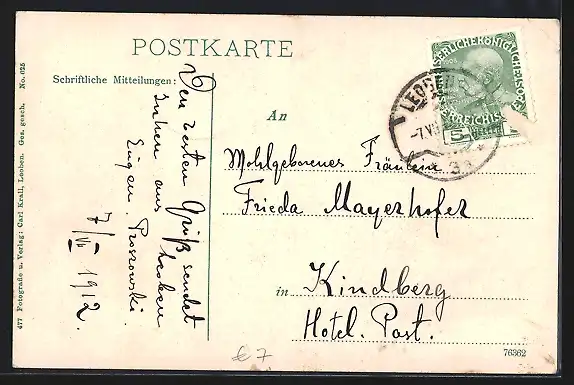 POSTKARTE
Schriftliche Mitteilungen:
Den besten Gruß sendet
Ihnen aus Leoben
Eugen Proszowski.
7/VII 1912.
An
Wohlgeborenes Fräulein
Frieda Mayerhofer
in Kindberg
Hotel. Post.
LEOBEN
-7.VII
3a
1908
5
477 Fotografie u. Verlag: Carl Krall, Leoben. Ges. gesch. No. 625
76362
€ 7